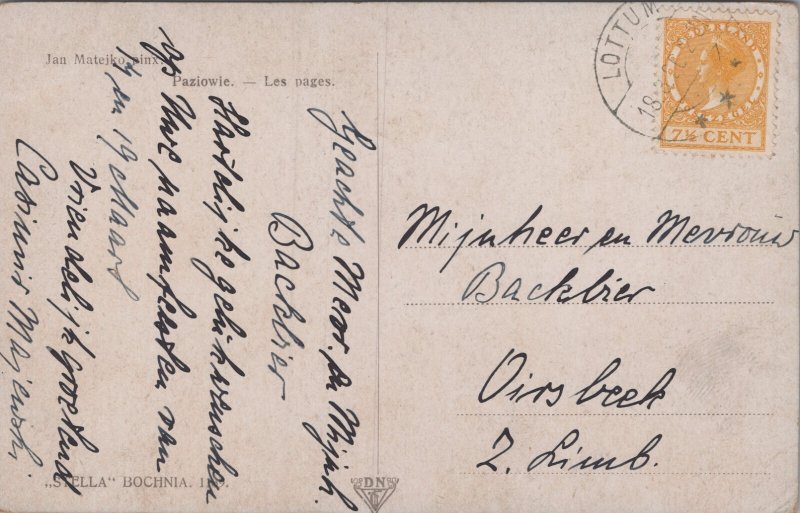 Jan Matejko pinx.
Paziowie. — Les pages.
Geachte Mevr. en Mijnh.
Backbier
Hartelijke gelukwenschen
op Uwe naamfeesten van
17 en 19 Maart
Vriendelijk groetend
Casimir Majewski
„STELLA" BOCHNIA.
DN
LOTTUM
18
NEDERLAND
7½ CENT
Mijnheer en Mevrouw
Backbier
Oirsbeek
Z. Limb.